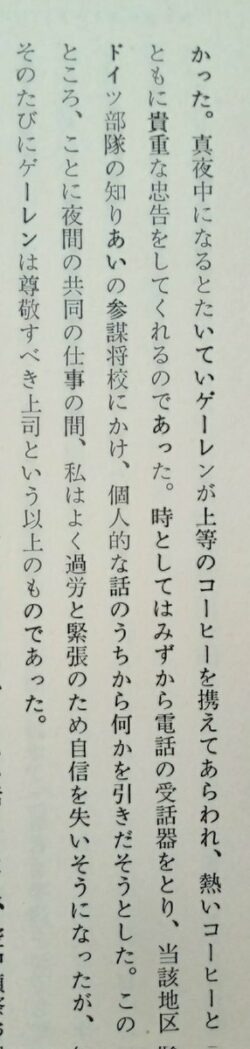 かった。真夜中になるとたいていゲーレンが上等のコーヒーを携えてあらわれ、熱いコーヒーと
ともに貴重な忠告をしてくれるのであった。時としてはみずから電話の受話器をとり、当該地区
ドイツ部隊の知りあいの参謀将校にかけ、個人的な話のうちから何かを引きだそうとした。この
ところ、ことに夜間の共同の仕事の間、私はよく過労と緊張のため自信を失いそうになったが、
そのたびにゲーレンは尊敬すべき上司という以上のものであった。